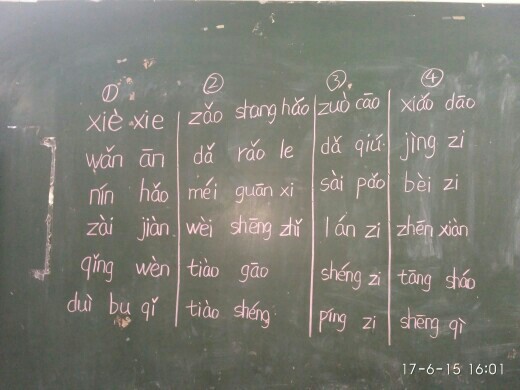 ①
xiè xie
wǎn ān
nín hǎo
zài jiàn
qǐng wèn
duì bu qǐ
②
zǎo shang hǎo
dǎ rǎo le
méi guān xi
wèi shēng zhǐ
tiào gāo
tiào shéng
③
zuò cāo
dǎ qiú
sài pǎo
lán zi
shéng zi
píng zi
④
xiǎo dāo
jìng zi
bèi zi
zhēn xiàn
tāng sháo
shēng qì
17-6-15 16:01